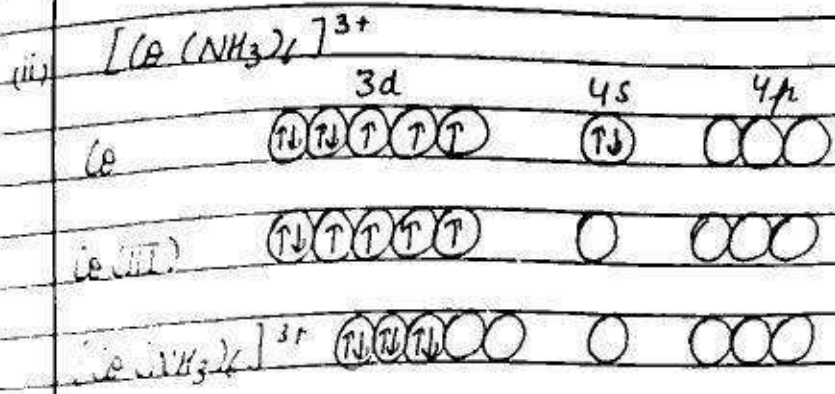 (ii) [Co (NH3)6]3+
3d 4s 4p
Co ↑↓ ↑↓ ↑ ↑ ↑ ↑↓
Co (III) ↑↓ ↑ ↑ ↑ ↑
[Co (NH3)6]3+ ↑↓ ↑↓ ↑↓